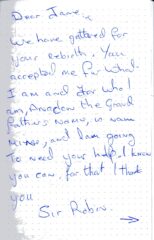 Dear Jane,
We have gathered for
your rebirth. You
accepted me for what
I am and for who I
am, the Grand
name, is name
and I am going
To need your help. I know
you can, for that I thank
you
Sir Robin.